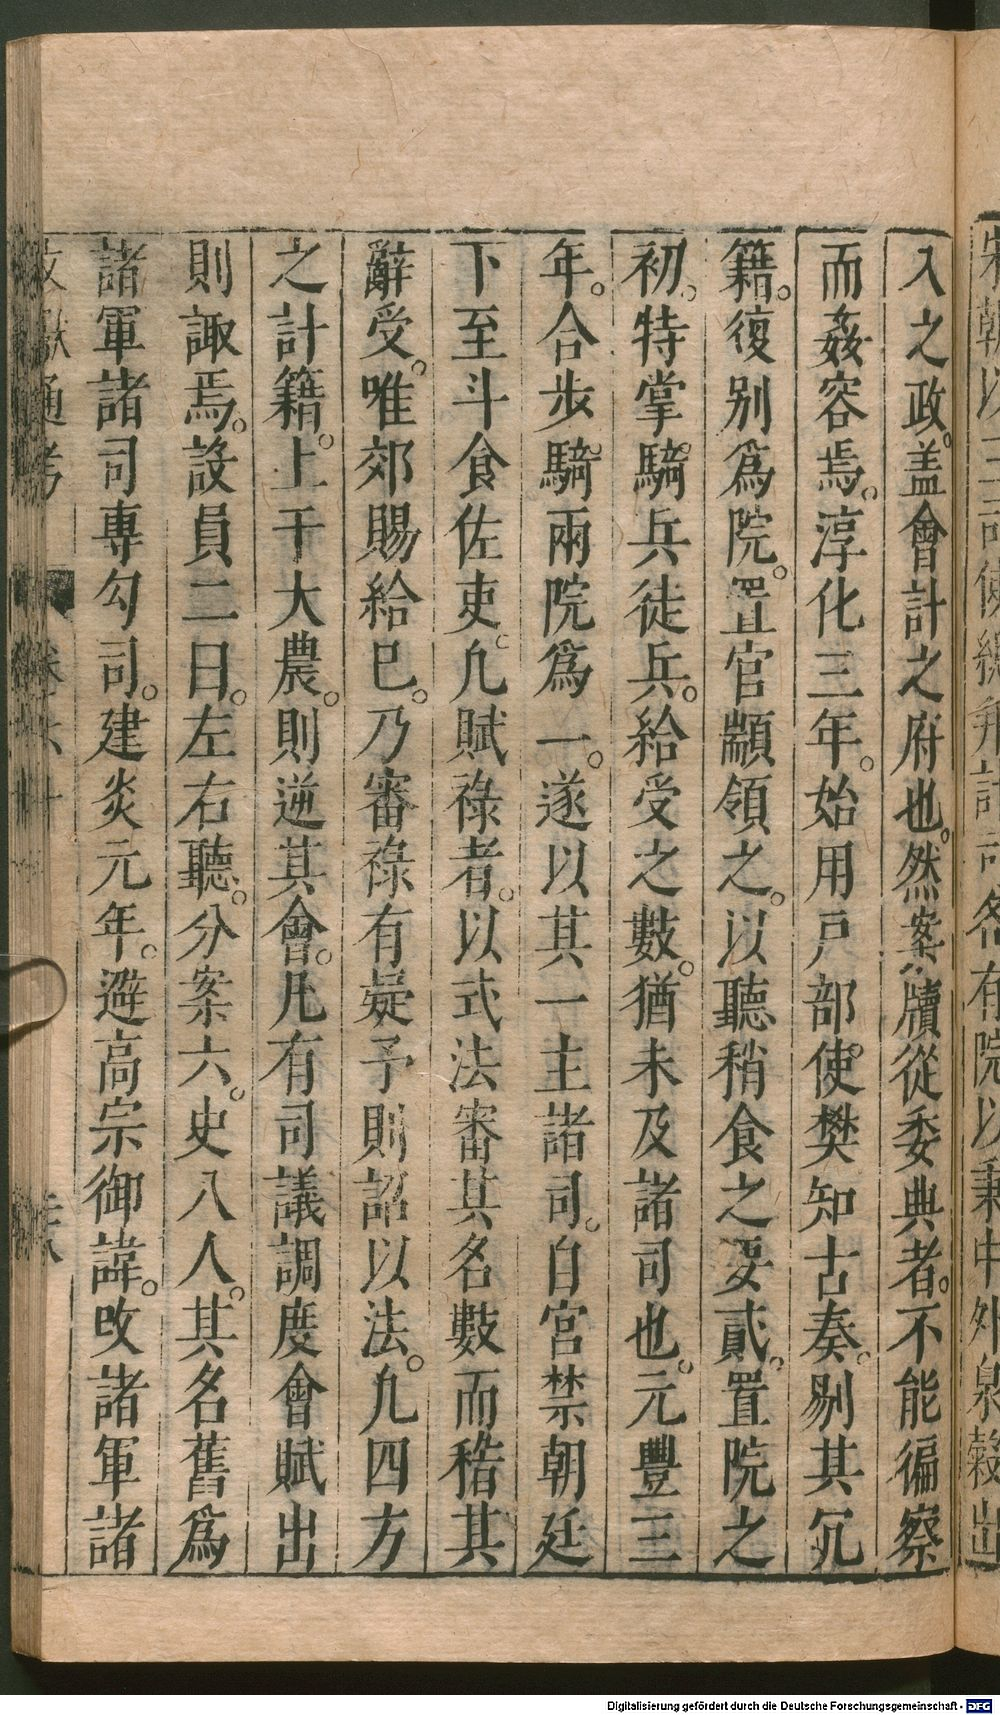 入之政。盖會計之府也。然案牘從委典者。不能徧察
而姦容焉。淳化三年。始用戸部使樊知古奏。剔其冗
籍。復别爲院。置官顓領之。以聽稍食之要貳。置院之
初。特掌騎兵徒兵。給受之數。猶未及諸司也。元豐三
年。合步騎兩院爲一。遂以其一主諸司。自宮禁朝廷
下至斗食佐吏。凢賦祿者。以式法審其名數而稽其
辭受。唯郊賜給巳。乃審祿有疑予則詔以法。凢四方
之計籍。上于大農。則逆其會。凡有司議調度會賦出
則諏焉。設員二曰。左右聽。分案六。史八人。其名舊爲
諸軍諸司專勾司。建炎元年。避高宗御諱。改諸軍諸
通考 卷六十
Digitalisierung gefördert durch die Deutsche Forschungsgemeinschaft - DFG